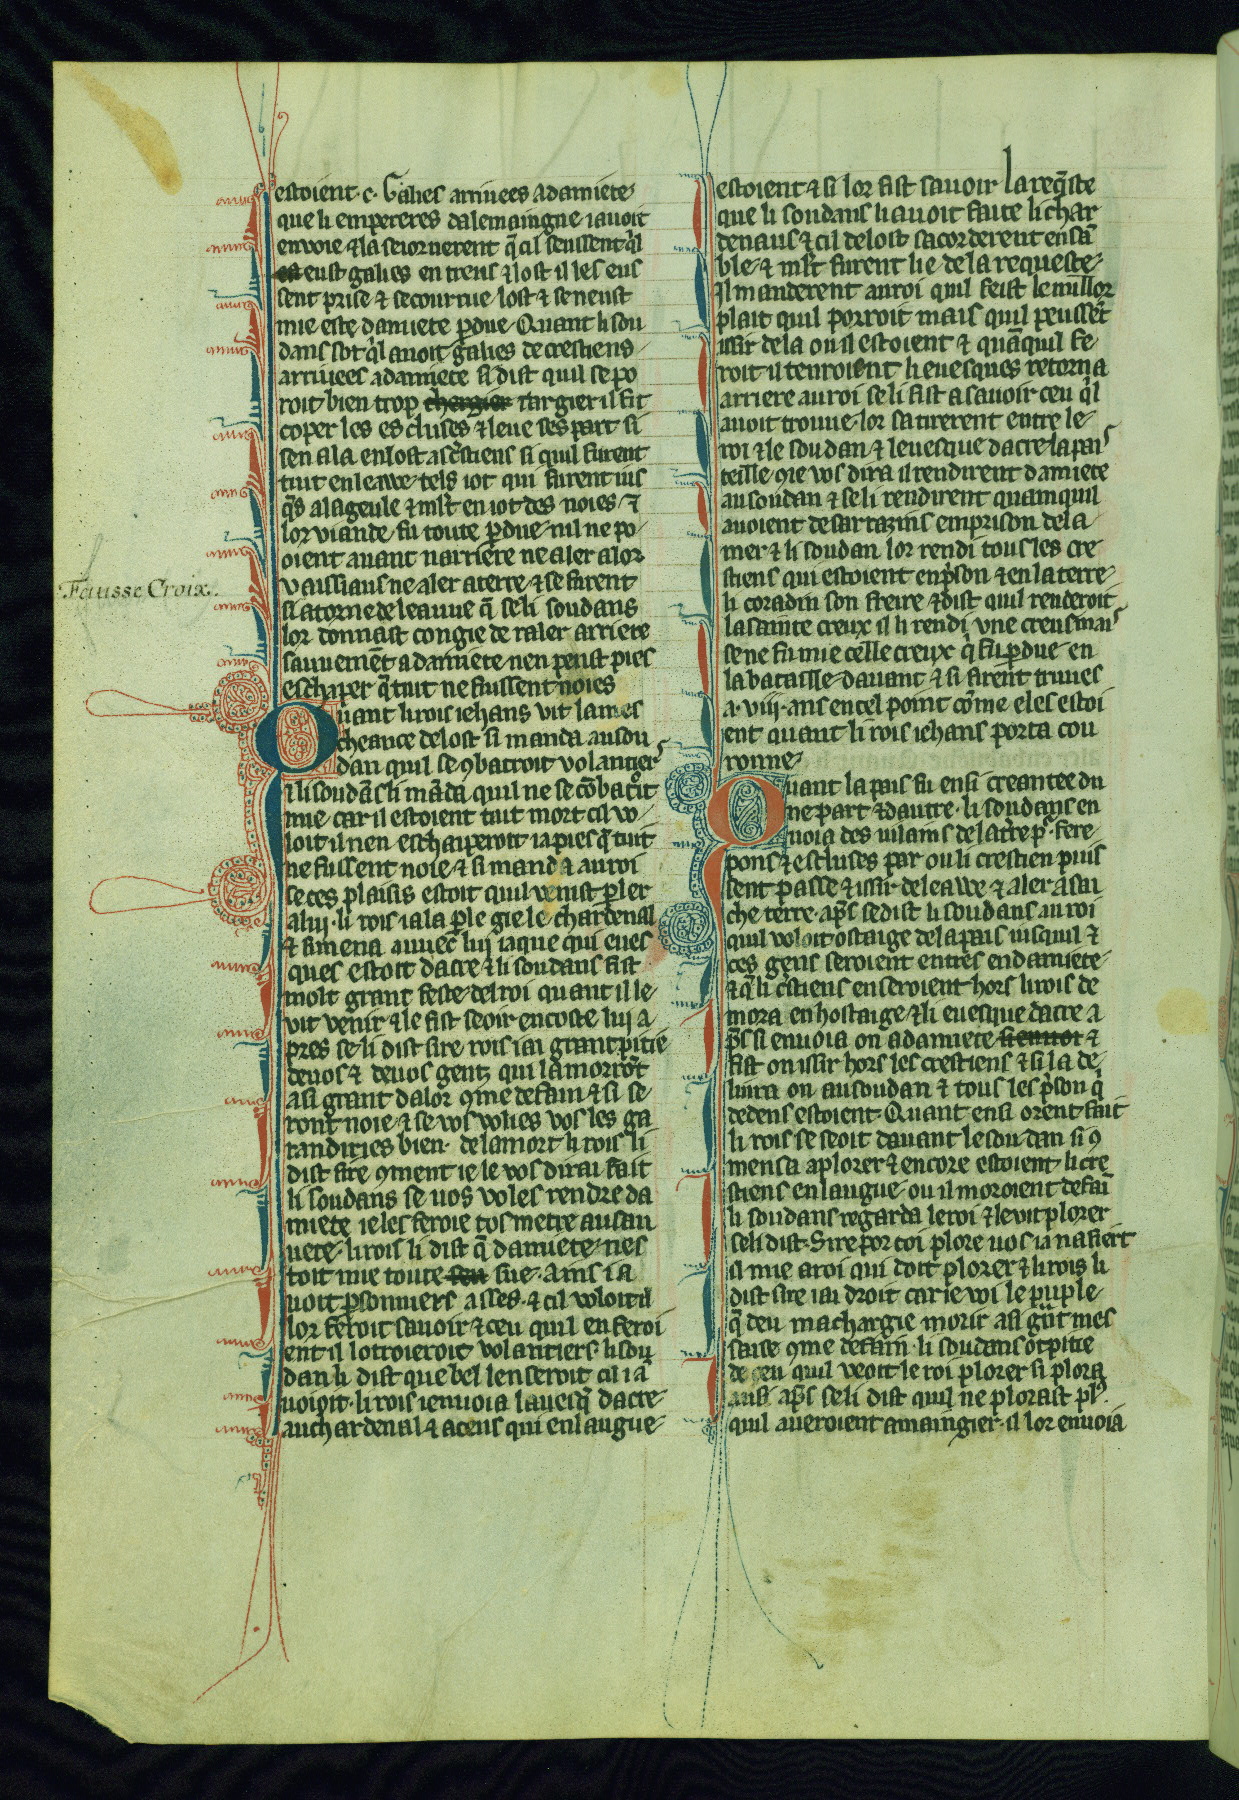 estoient .c. Galies arriuees a damiete
que li empereres dalemaingne i auoit
enuoie ⁊ la seiornerent q̃ cil seussent q̓l
eust galies en treus ⁊ lost il les eus
sent prise ⁊ secourrue lost ⁊ se neust
mie este damiete ꝑdue. Quant li sou
dans sot q̓l auoit galies de crestiens
arriuees a damiete si dist quil se po
roit bien trop targier il fit
coper les escluses ⁊ leue ses part si
sen ala en lost
tuit en leawe tels iot qui furent ius
q̃s a la geule ⁊ mlt en iot des noies ⁊
lor viande fu toute ꝑdue nul ne po
oient auant narriere ne aler a lor
vaissiaus ne aler a terre ⁊ se furent
si atorne de leauue q̃ se li soudans
lor donnast congie de raler arriere
sauuemẽt a damiete nen peust pies
eschaper q̃ tuit ne fussent noies
Quant li rois iehans vit la mes
cheance de lost si manda au sou
dan quil se ꝯbatroit volantiers
⁊ li soudãs li mãda quil ne se cõbat̾oit
mie car il estoient tuit mort cil vo
loit il nen eschaiperoit ia pies q̃ tuit
ne fussent noie ⁊ si manda au roi
se ces plaisis estoit quil venist ꝑler
a luj. li rois i ala ꝑ le gie le chardenal
⁊ amena auuec luj iaque qui eues
ques estoit dacre ⁊ li soudans fist
molt grant feste del roi quant il le
vit venir ⁊ le fist seoir encoste luj a
pres se li dist sire rois iai grant pitie
de uos ⁊ de uos gent qui la morrõt
a si grant dalor ꝯme de fain ⁊ si se
ront noie ⁊ se vos volies vos les ga
randiries bien de la mort li rois li
dist sire ꝯment ie le vos dirai fait
li soudans se uos voles rendre da
miete ie les feroie tos metre a sau
uete. li rois li dist q̃ damiete nes
toit mie toute sue. Ains i a
uoit ꝑsonniers asses. ⁊ cil voloit il
lor feroit sauoir ⁊ ceu quil en feroi
ent il lotroieroit volantiers li sou
dan li dist que bel len seroit cil i ã
uoioit. li rois i enuoia lauecq̃ dacre
au chardenal ⁊ a ceus qui en laugue
estoient ⁊ si lor fist sauoir la req̃ste
que li soudans li auoit faite li char
denaus ⁊ cil de lost sacorderent ensã
ble ⁊ mlt furent lie de la requeste
Il manderent au roi quil feist le millor
plait quil porroit mais quil peussẽt
issir de la ou il estoient ⁊ quãquil fe
roit il tenroient li euesques retorna
arriere au roi se li fist a sauoir ceu q̓l
auoit trouue. lor sa tirerent entre le
roi ⁊ le soudan ⁊ leuesque dacre la pais
teille ꝯe vos dira il rendirent damiete
au soudan ⁊ se li rendirent quamquil
auoient de sarrazins emprison de la
mer ⁊ li soudan lor rendi tous les cre
stiens qui estoient en p̓son ⁊ en la terre
li coradin son freire ⁊ dist quil renderoit
la sainte creux il li rendi vne creus mais
se ne fu mie celle creux q̃ fu ꝑdue en
la bataille dauant ⁊ si firent truues
a .viij. ans en cel point cõme eles estoi
ent quant li rois iehans porta cou
ronne
Quant la pais fu ensi creantee du
ne part ⁊ dautre. li soudans en
uoia des uilains de la t̾re p̱ fere
pons ⁊ escluses par ou li crestien puis
sent passe ⁊ issir de leawe ⁊ aler a sai
che terre. ap̃s se dist li soudans au roi
quil voloit ostaige de la pais iusquil ⁊
ces gens seroient entres en damiete
⁊ q̃ li c̾stiens en seroient hors li rois de
mora en hostaige ⁊ li euesque dacre a
p̃s si enuoia on a damiete ⁊
fist on issir hors les crestiens ⁊ si la de
liura on au soudan ⁊ tous les p̓son q̓
dedens estoient. Quant ensi orent fait
li rois se seoit dauant le soudan si ꝯ
mensa a plorer ⁊ encore estoient li cre
stiens en laugue ou il moroient de faĩ
li soudans regarda le roi ⁊ le vit plorer
se li dist. Sire por coi plore uos ia nafiert
il mie a roi qui doit plorer ⁊ li rois li
dist sire iai droit car ie voi le puple
q̃ deu ma chargie morir a si g̾nt mes
saise ꝯme de fain. li soudans ot pitie
de ceu quil veoit le roi plorer si plora
ausi ap̃s se li dist quil ne plorast pl᷒.
quil aueroient a maingier. il lor enuoia
Fausse Croix.